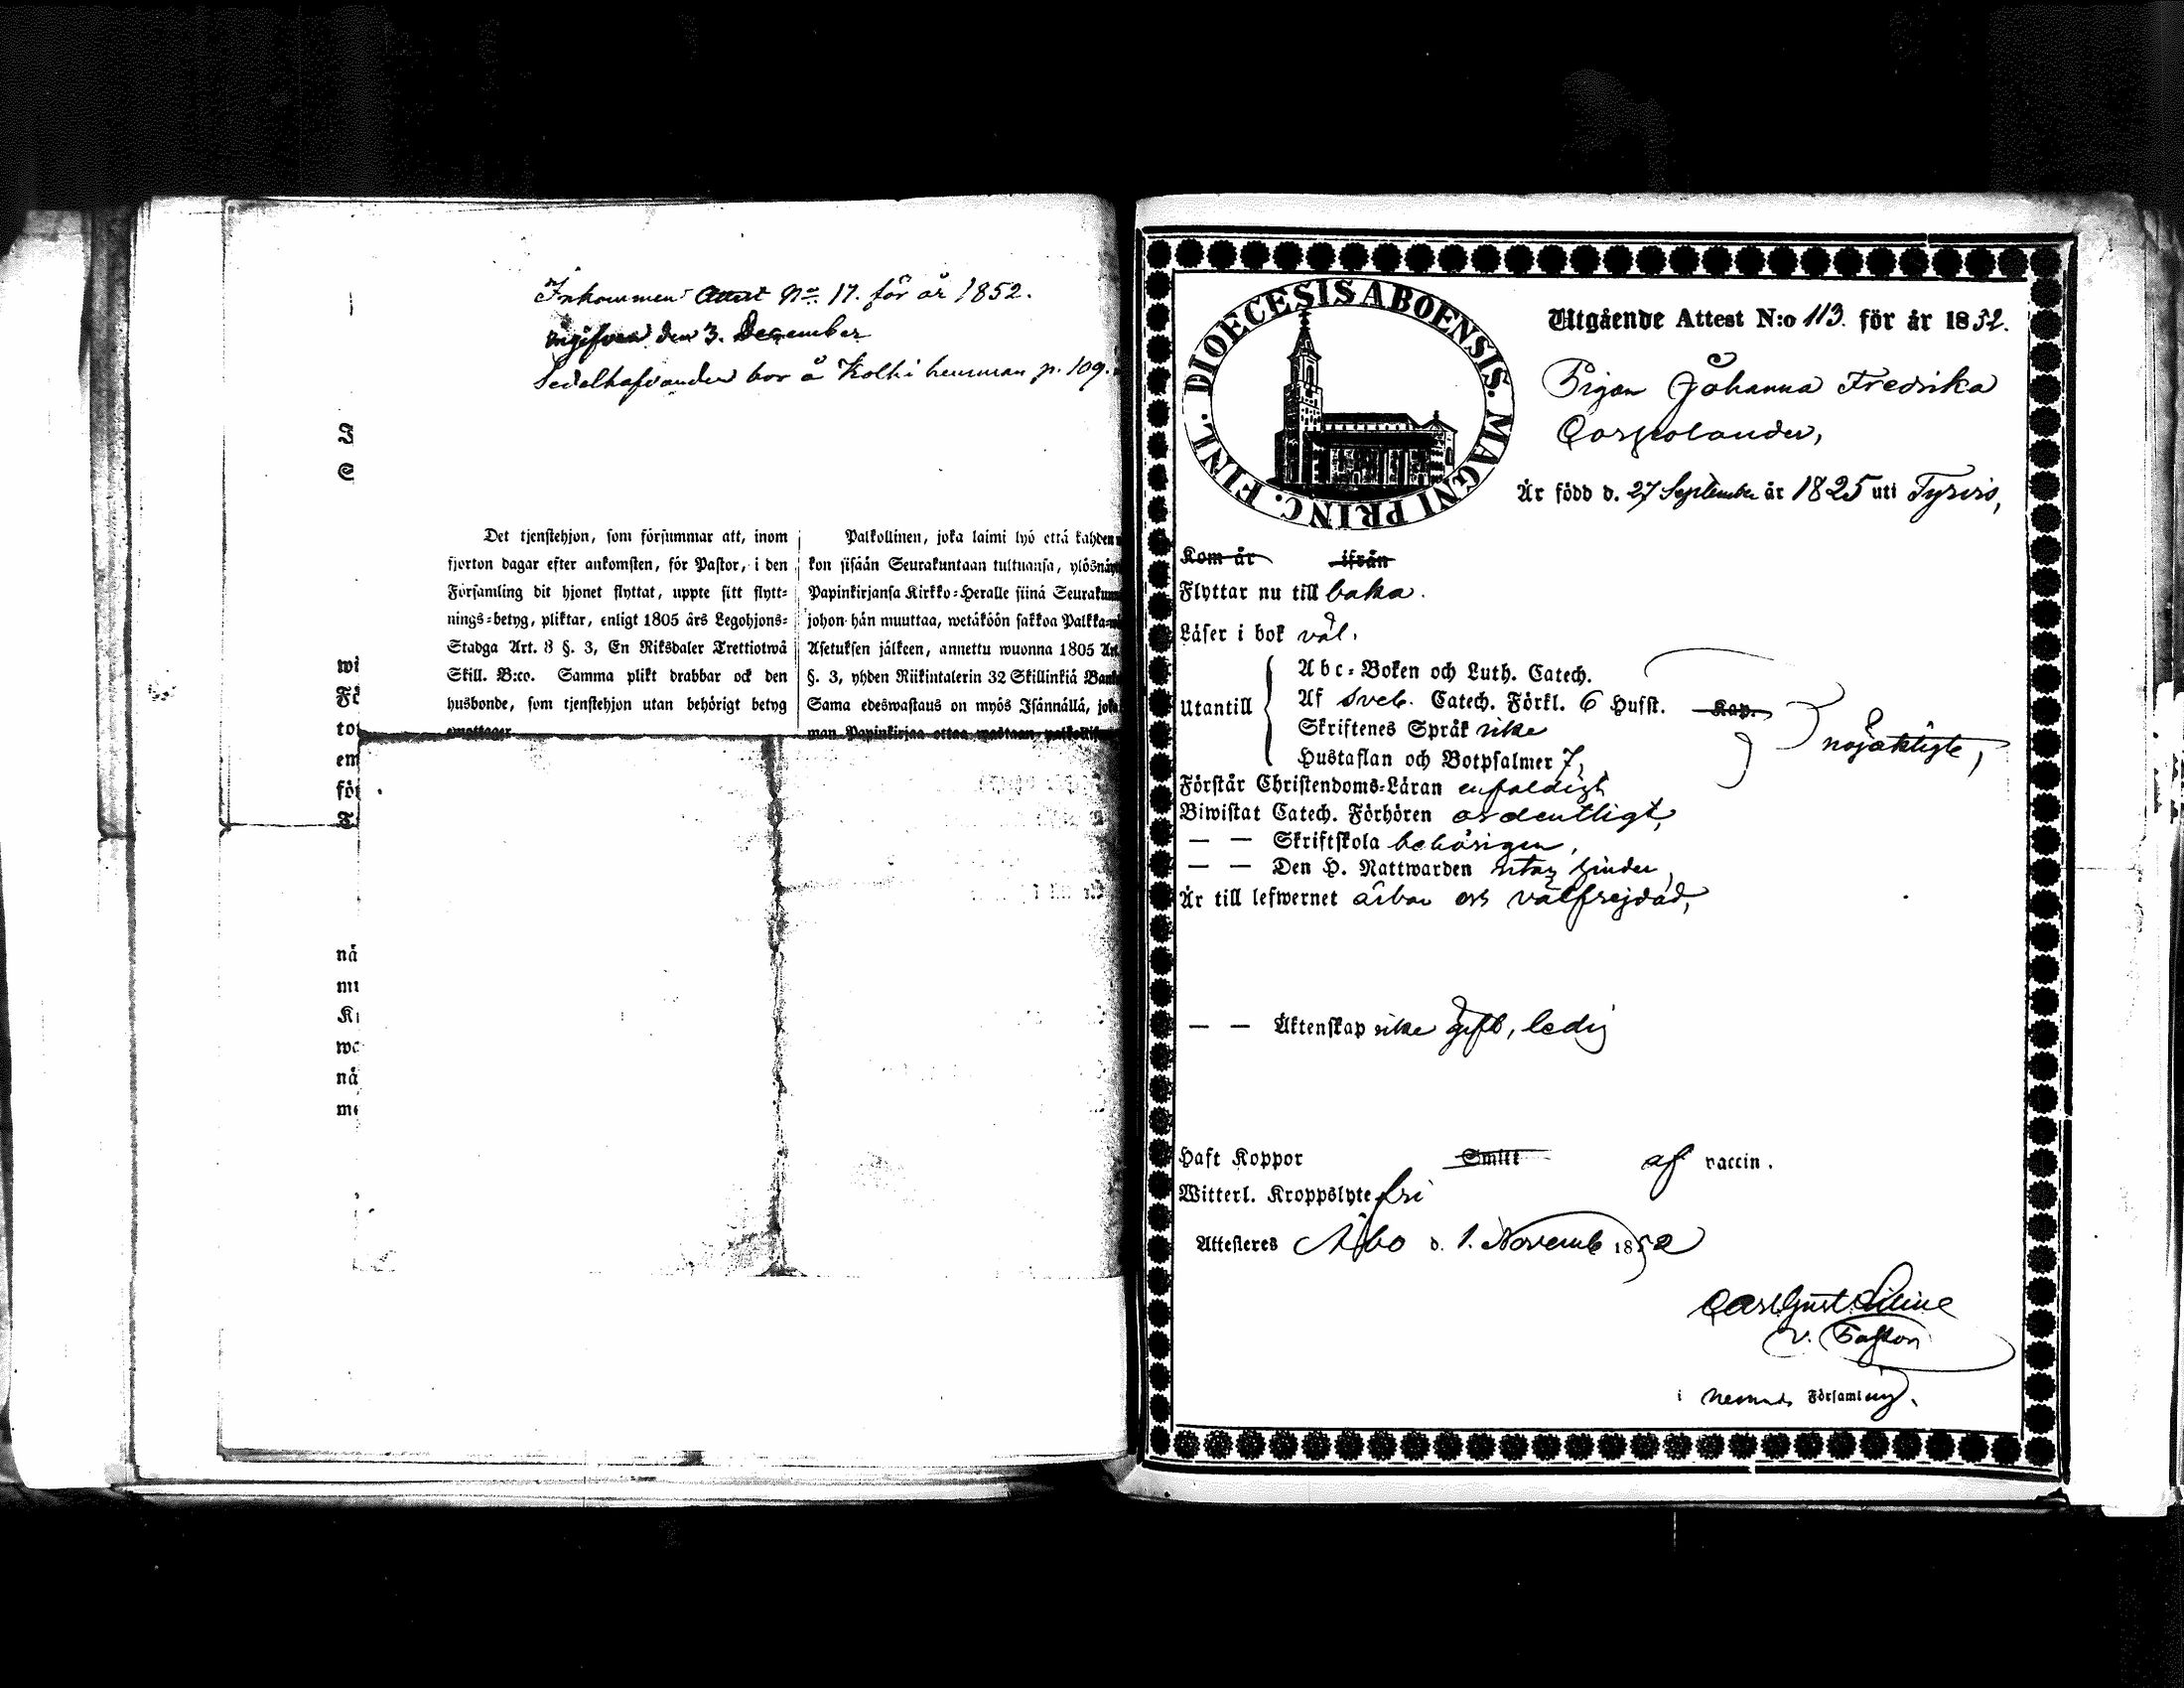 Inkommen Attest No 17. för år 1852.
ingifven den 3. December
Sedelhafvanden bor å Kolki hemman p. 109.
Det tjenstehjon, som försummar att, inom
fjorton dagar efter ankomsten, för Pastor, i den
Församling dit hjonet flyttat, uppte sitt flytt-
nings-betyg, pliktar, enligt 1805 års Legohjons-
Stadga Art. 8 §. 3, En Riksdaler Trettiotwå
Skill. B:co. Samma plikt drabbar ock den
husbonde, som tjenstehjon utan behörigt betyg
emottager
Palkollinen, joka laimi lyö että kahden
kon sisään Seurakuntaan tultuansa, ylösnäy
Papinkirjansa Kirkko-Heralle siinä Seurakun
johon hän muuttaa, wetäköön sakkoa Palkka-
Asetuksen jälkeen, annettu wuonna 1805 Art.
§. 3, yhden Riikintalerin 32 Skillinkiä Bank
Sama edeswastaus on myös Isännällä, joka
man Papinkirjaa ottaa wastaan palkollisen
wi
nå
mu
nå
DIOECESIS ABOENSIS. MAGNI PRINC. FINL.
Utgående Attest N:o 113. för år 1852.
Pigan Johanna Fredrika
är född d. 27 September år 1825 uti Tyrvis,
Kom år ifrån
Flyttar nu till baka.
Läser i bok väl.
Abc-Boken och Luth. Catech.
Utantill
Af Sveb. Catech. Förkl. 6 Hufst. Kap.
Skriftenes Språk icke
nöjaktigt,
Hustaflan och Botpsalmer 7,
Förstår Christendoms-Läran enfaldigt
Biwistat Catech. Förhören ordentligt,
— — Skriftskola behörigen,
— — Den H. Nattwarden utan hinder,
Är till lefwernet ärbar och välfrejdad,
— — Äktenskap icke gift, ledig
Haft Koppor Smitt af vaccin.
Witterl. Kroppslyte fri
Attesteres Åbo d. 1. Novemb 1852
Carl Gust.
v. Pastor
i Församling.